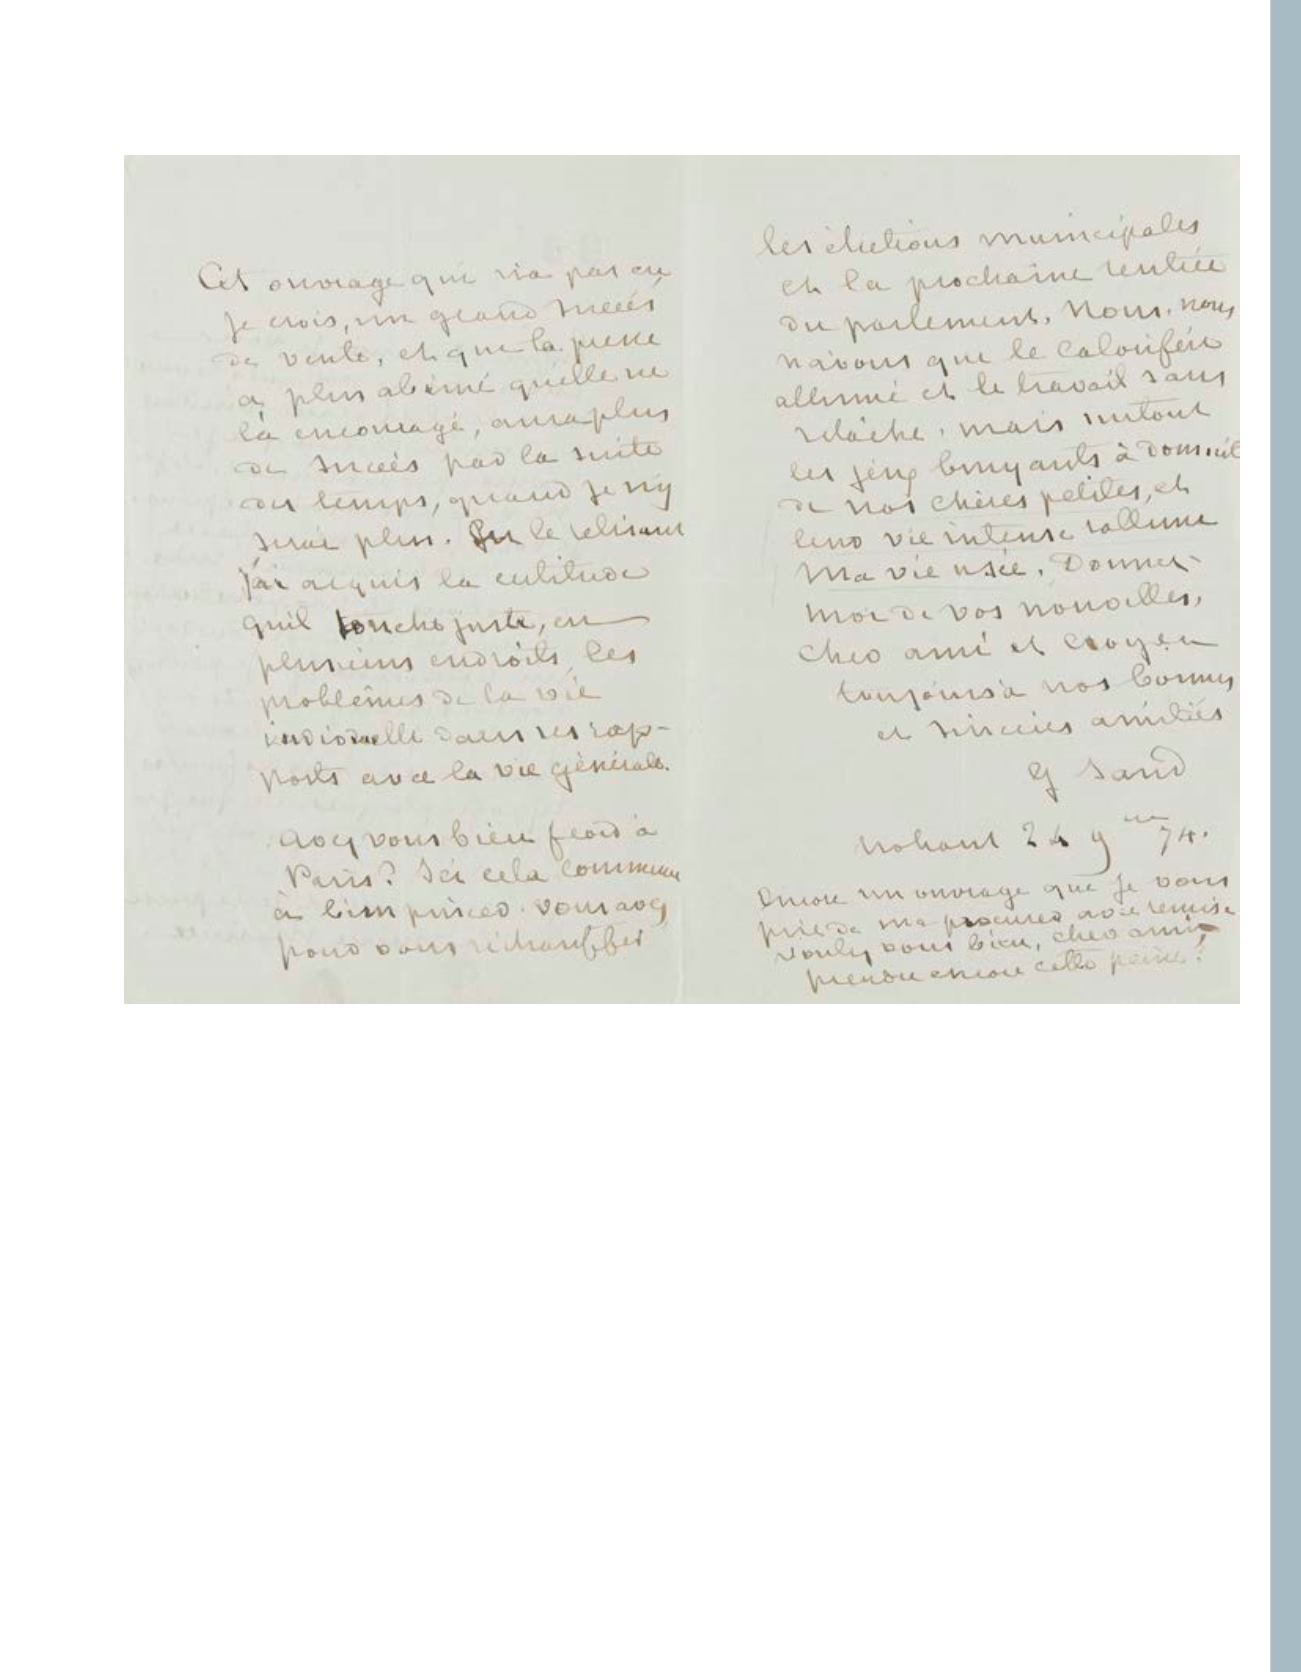 Cet ouvrage qui n'a pas eu
je crois, un grand succès
de vente, et que la presse
a plus abimé qu'elle ne
l'a encouragé, aura plus
de succès par la suite
des temps, quand je n'y
serai plus. En le relisant
j'ai acquis la certitude
qu'il touche juste, en
plusieurs endroits, les
problèmes de la vie
individuelle dans ses rap-
ports avec la vie générale.
Avez vous bien froid à
Paris? Ici cela commence
à bien pincer. vous avez
pour vous réchauffer
les élections municipales
et la prochaine rentrée
du parlement. Nous, nous
n'avons que le calorifère
allumé et le travail sans
relâche, mais surtout
les jeux bruyants à domicile
de nos chères petites, et
leur vie intense rallume
ma vie usée. Donnez-
moi de vos nouvelles,
cher ami et croyez
toujours à nos bonnes
et sincères amitiés
G Sand
Nohant 24 9bre 74.
Encore un ouvrage que je vous
prie de me procurer avec remise
voulez vous bien, cher ami,
prendre encore cette peine?